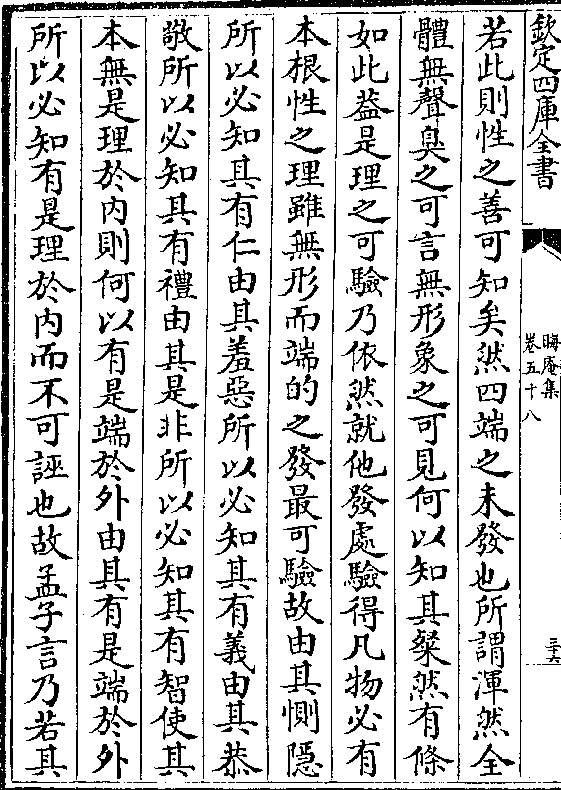 欽定四庫全書
晦庵集
卷五十八
三十六
若此則性之善可知矣然四端之未發也所謂渾然全
體無聲臭之可言無形象之可見何以知其粲然有條
如此蓋是理之可驗乃依然就他發處驗得凡物必有
本根性之理雖無形而端的之發最可驗故由其惻隱
所以必知其有仁由其羞惡所以必知其有義由其恭
敬所以必知其有禮由其是非所以必知其有智使其
本無是理於内則何以有是端於外由其有是端於外
所以必知有是理於内而不可誣也故孟子言乃若其